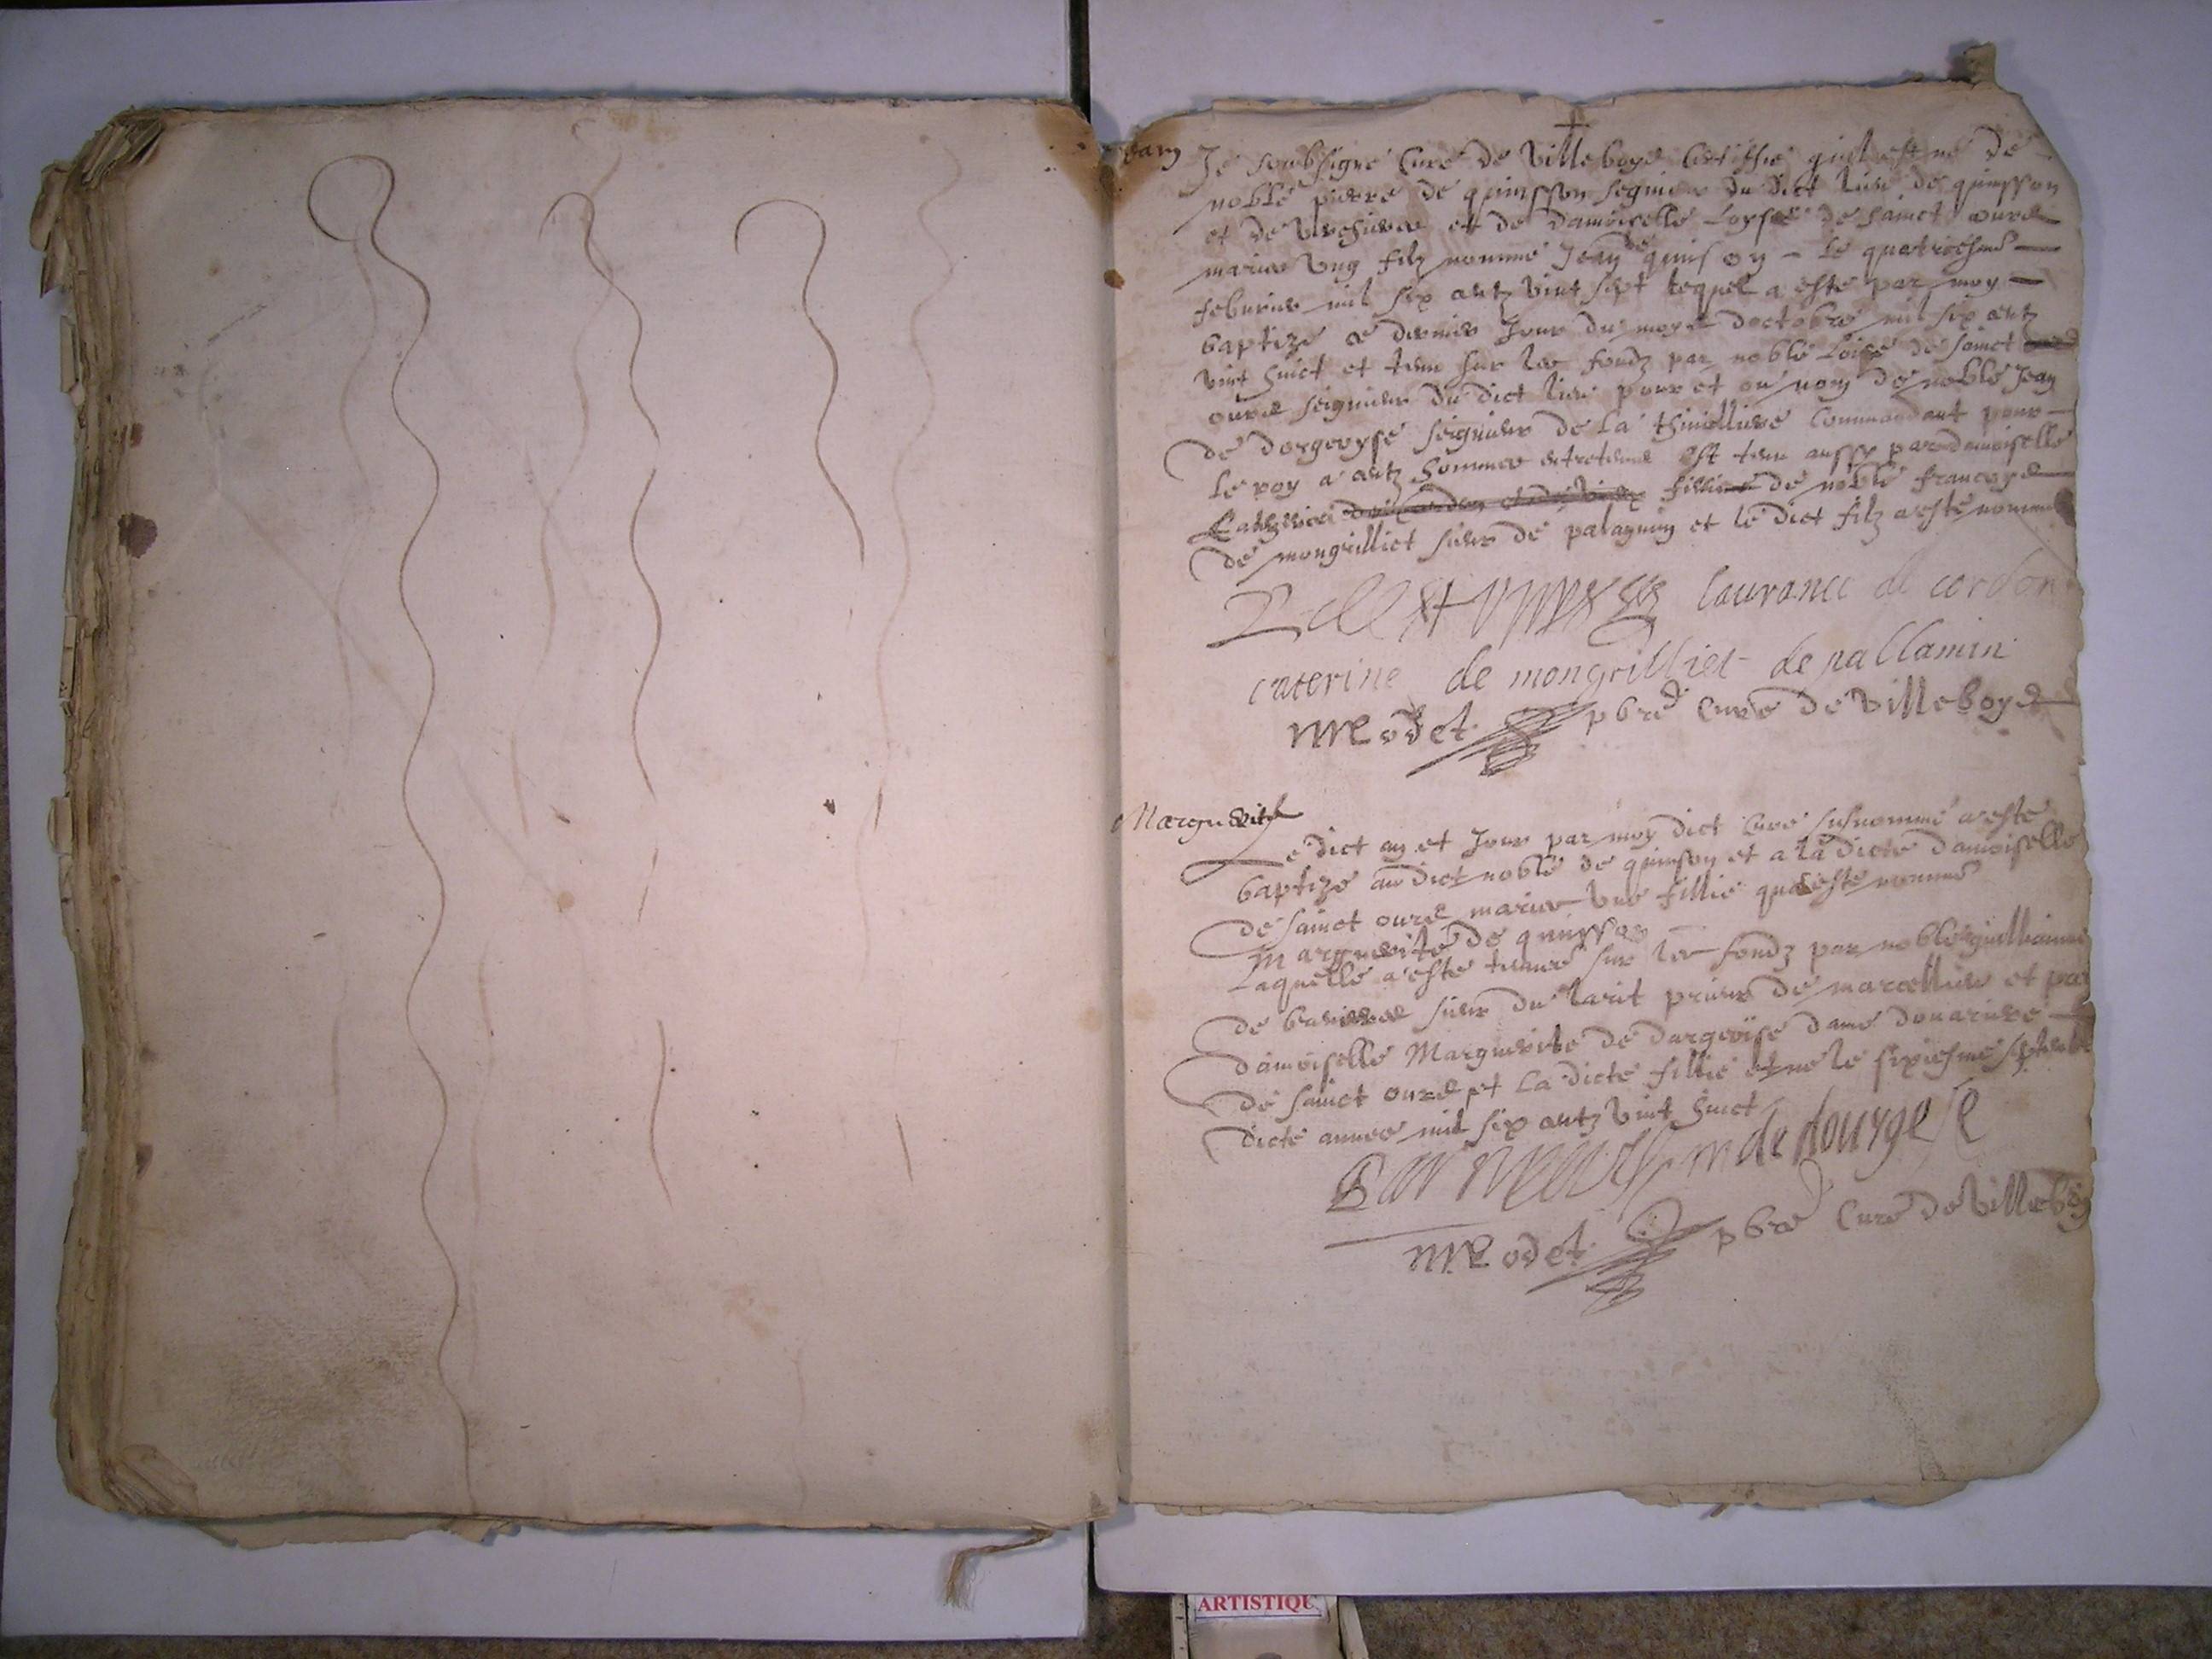 Jean
Je soubsigné Curé de Villeboys Certiffie quil est né de
noble pierre de quinsson seigneur du dict lieu de quinsson
et de et de damoiselle Loyse de sainct ours
mariés Ung filz nommé Jean de quinson le quatriesme
febvrier mil six centz vint sept lequel a esté par moy
baptizé ce dernier Jour du moys doctobre mil six centz
vint huict et tenu sur les fondz par noble de sainct
ours seigneur du dict lieu pour et au nom de noble Jean
de dorgeoyse seigneur de La thivolliere Commandant pour
le roy a centz hommes est tenu aussy par damoiselle
Catherine fillie de noble françoys
de mongrilliet sieur de palagnin et le dict filz a esté nommé
laurance de cordon
caterine de mongrilliet de pallamin
Meodet pbre Curé de Villeboys
Marguerite
Le dict an et Jour par moy dict Curé susnommé a esté
baptizé au dict noble de quinson et a la dicte damoiselle
de sainct ours mariés une fillie qua esté nommé
Marguerite de quinsson
Laquelle a esté tenue sur les fondz par noble guilliaume
de sieur du prieur de et par
damoiselle Marguerite de dargeoise dame douairiere
de sainct ours et La dicte fillie est né le sixiesme septembre
dicte année mil six centz vint huict
m de dourgese
Meodet pbre Curé de Villeboys
ARTISTIQU